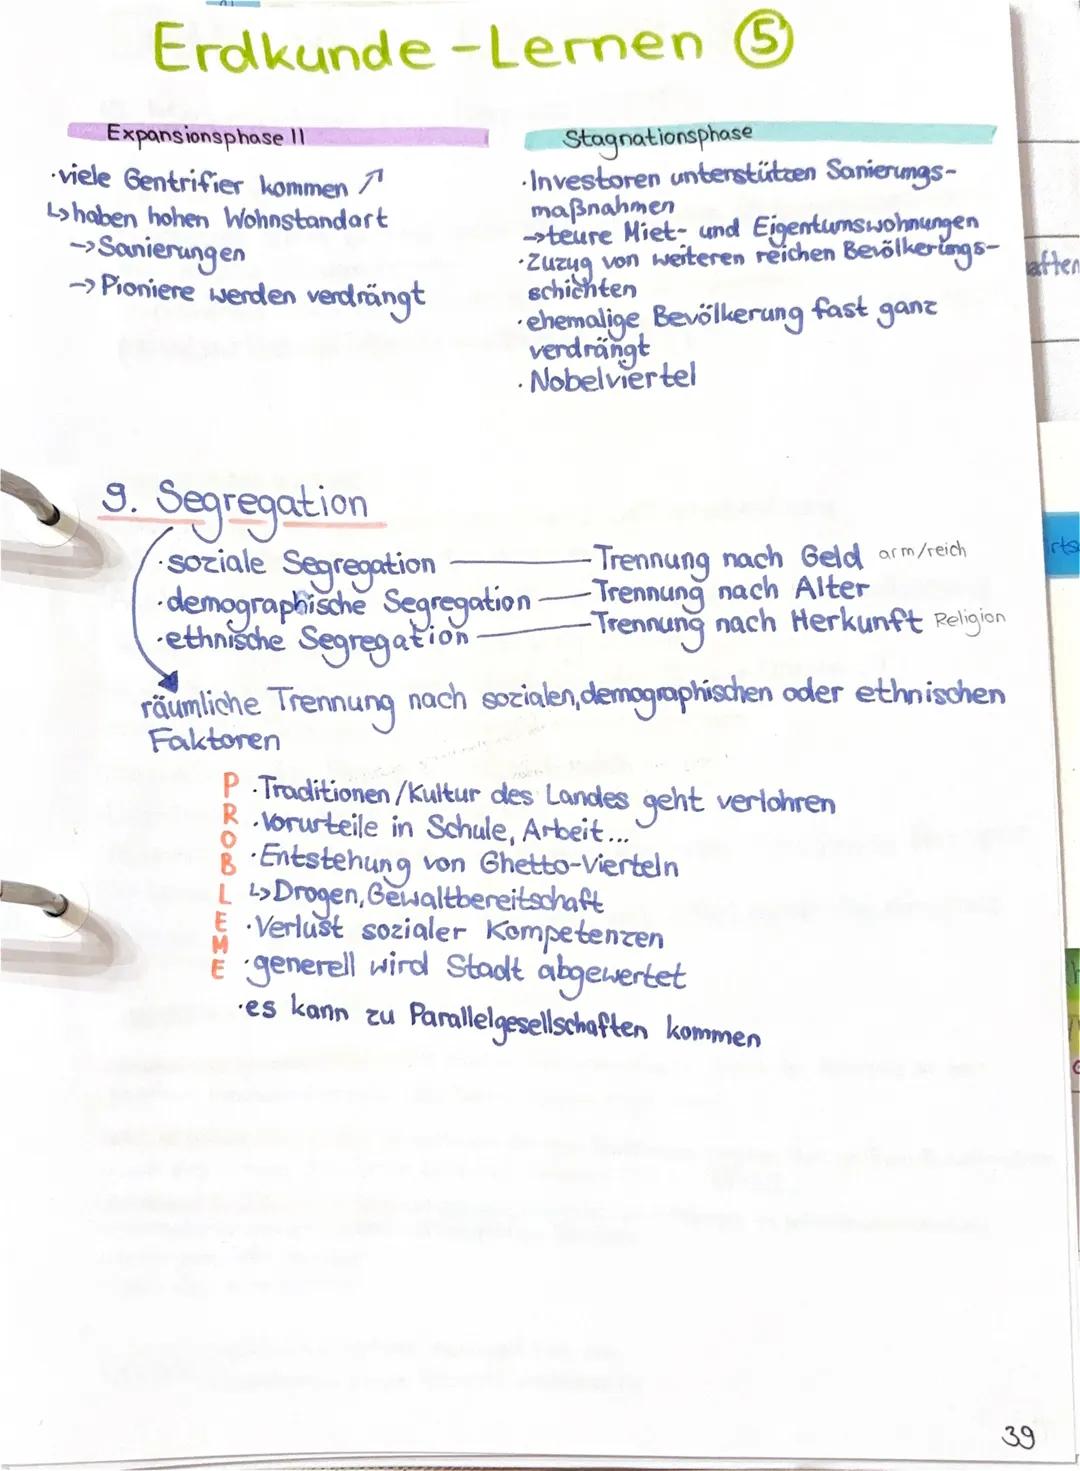 Erdkunde - Lernen ⑤
Expansionsphase II
·viele Gentrifier kommen ↗
↳haben hohen Wohnstandart
->Sanierungen
->Pioniere werden verdrängt
Stagnationsphase
·Investoren unterstützen Sanierungs-
maßnahmen
->teure Miet- und Eigentumswohnungen
·Zuzug von weiteren reichen Bevölkerungs-
schichten
·ehemalige Bevölkerung fast ganz
verdrängt
·Nobelviertel
9. Segregation
·soziale Segregation — Trennung nach Geld arm/reich
·demographische Segregation — Trennung nach Alter
·ethnische Segregation — Trennung nach Herkunft Religion
räumliche Trennung nach sozialen, demographischen oder ethnischen
Faktoren
PROBLEME
·Traditionen/Kultur des Landes geht verlohren
·Vorurteile in Schule, Arbeit...
·Entstehung von Ghetto-Vierteln
↳Drogen, Gewaltbereitschaft
·Verlust sozialer Kompetenzen
·generell wird Stadt abgewertet
·es kann zu Parallelgesellschaften kommen
aften
rts
39